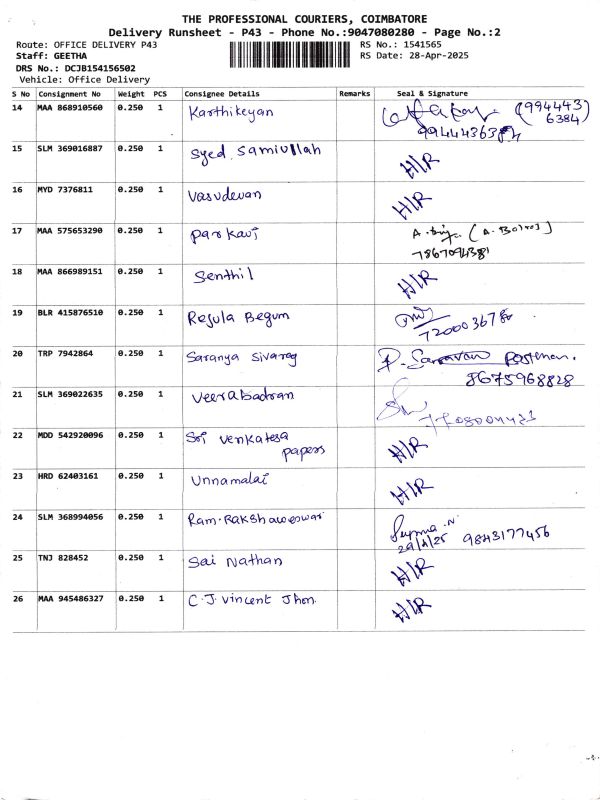 THE PROFESSIONAL COURIERS, COIMBATORE
Delivery Runsheet - P43 - Phone No.:9047080280 - Page No.:2
Route: OFFICE DELIVERY P43 RS No.: 1541565
Staff: GEETHA RS Date: 28-Apr-2025
DRS No.: DCJB154156502
Vehicle: Office Delivery
S No Consignment No Weight PCS Consignee Details Remarks Seal & Signature
14 MAA 868910560 0.250 1 Karthikeyan (994443
6384)
15 SLM 369016887 0.250 1 Syed. Samiullah H/R
16 MYD 7376811 0.250 1 Vasudevan H/R
17 MAA 575653290 0.250 1 Parkavi
7867094381
18 MAA 866989151 0.250 1 Senthil H/R
19 BLR 415876510 0.250 1 Regula Begum
20 TRP 7942864 0.250 1 Saranya Sivaraj P. Saravan Postman.
8675968828
21 SLM 369022635 0.250 1 Veerabadran
22 MDD 542920096 0.250 1 Sri Venkatesa H/R
papers
23 HRD 62403161 0.250 1 Unnamalai H/R
24 SLM 368994056 0.250 1 Ram.Rakshaweswar
29/4/25 9843177456
25 TNJ 828452 0.250 1 Sai Nathan H/R
26 MAA 945486327 0.250 1 C.J.Vincent Jhon. H/R